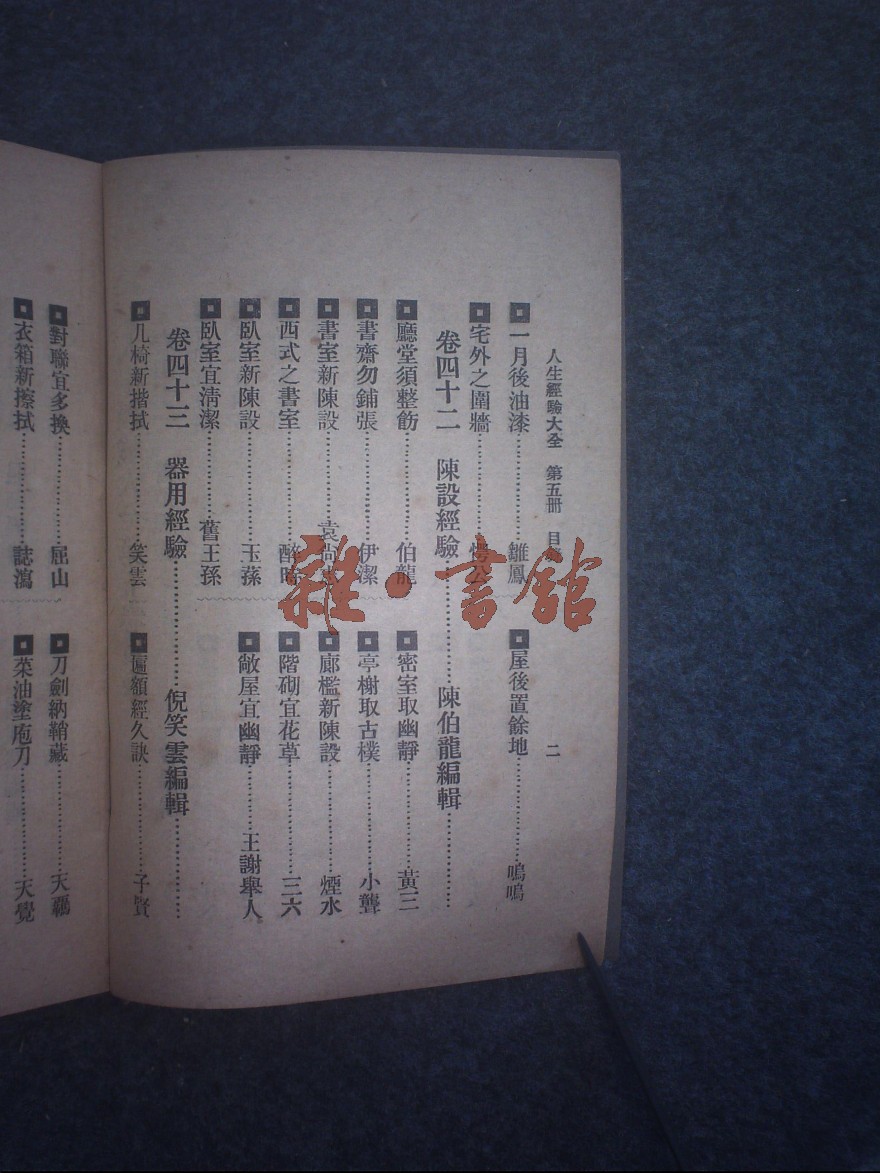 人生經驗大全　第五冊　目
二
一月後油漆………雛鳳
屋後置餘地………鳴鳴
宅外之圍牆………愕公
卷四十二　陳設經驗………陳伯龍編輯………
廳堂須整飭………伯龍
密室取幽靜………黃三
書齋勿鋪張………伊潔
亭榭取古樸………小聾
書室新陳設………袁尚
廊檻新陳設………煙水
西式之書室………醉時
階砌宜花草………三六
臥室新陳設………玉蓀
敞屋宜幽靜………王謝舉人
臥室宜淸潔………舊王孫
卷四十三　器用經驗………倪笑雲編輯………
几椅新揩拭………笑雲
匾額經久訣………子賢
對聯宜多換………屈山
刀劍納鞘藏………天羈
衣箱新擦拭………誌瀉
菜油塗庖刀………天覺
雜·書館